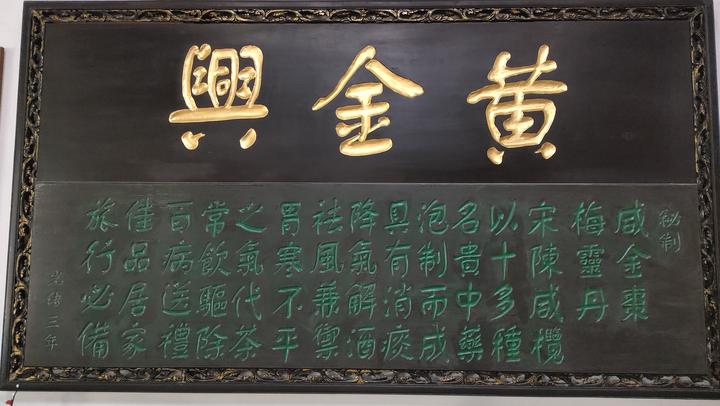 黄金興
秘制
咸金棗
梅靈丹
宋陳咸欖
以十多種
名貴中藥
泡制而成
具有消痰
降氣解酒
祛風兼禦
胃寒不平
之氣代茶
常飲驅除
百病送禮
佳品居家
旅行必備
光绪三年